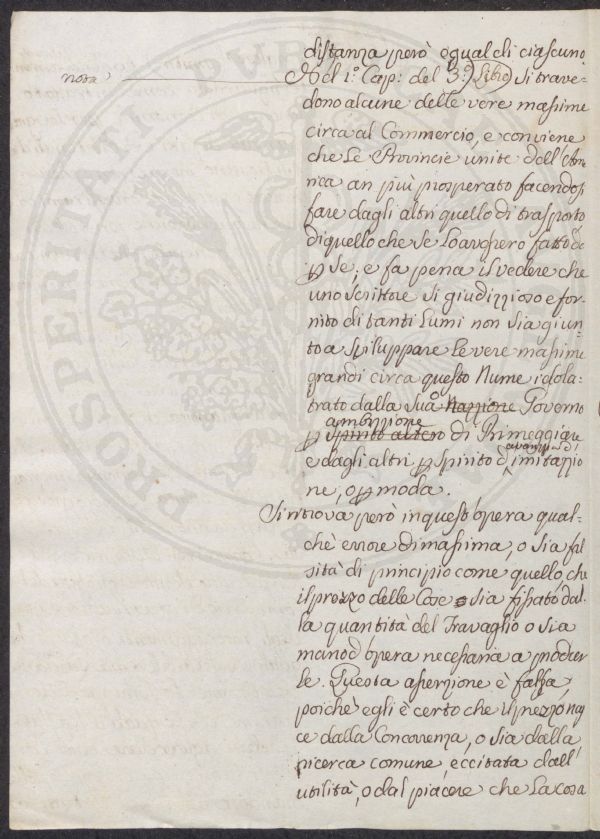 distanza però egual di ciascuno.
nota
Nel 1.° Cap: del 3.° Libro si trave-
dono alcune delle vere massime
circa al Commercio, e conviene
che Le Provincie unite dell'Ame-
rica an più prosperato facendosi
fare dagli altri quello di trasporto
di quello che se Lo avessero fatto da
per se; e fa pena il vedere che
uno scrittore si giudizzioso e for-
nito di tanti Lumi non sia giun-
to a sviluppare Le vere massime
grandi circa questo Nume idola-
trato dalla Suo Nazzione Governo
ambizzione
per spirito altero di Primeggiare
avanzo di
e dagli altri per spirito d'imitazzio
ne, o per moda.
Si ritrova però in quest'opera qual-
chè errore di massima, o sia fal
sità di principio come quello, che
il prezzo delle Cose sia fissato dal-
la quantità del Travaglio o sia
manod'opera necessaria a produr
le. Questa asserzione è falsa,
poichè egli è certo che il prezzo na
ce dalla Concorrenza, o sia dalla
ricerca comune, eccitata dall'
utilità, o dal piacere che La cosa
PROSPERITATI PUBLICAE